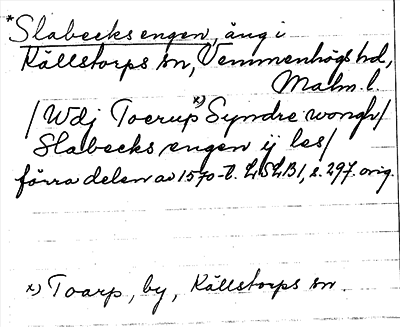 *Slabecks engen, äng i
Källstorps sn, Vemmenhögs hd,
Malm. l.
/Wdj Toerup x) Syndre wongh/
Slabecks engen ij les/
förra delen av 1570-t. LSLB1, s. 297. orig.
x) Toarp, by, Källstorps sn.